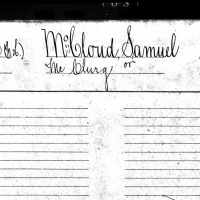 McCloud, Samuel
or
McClurg